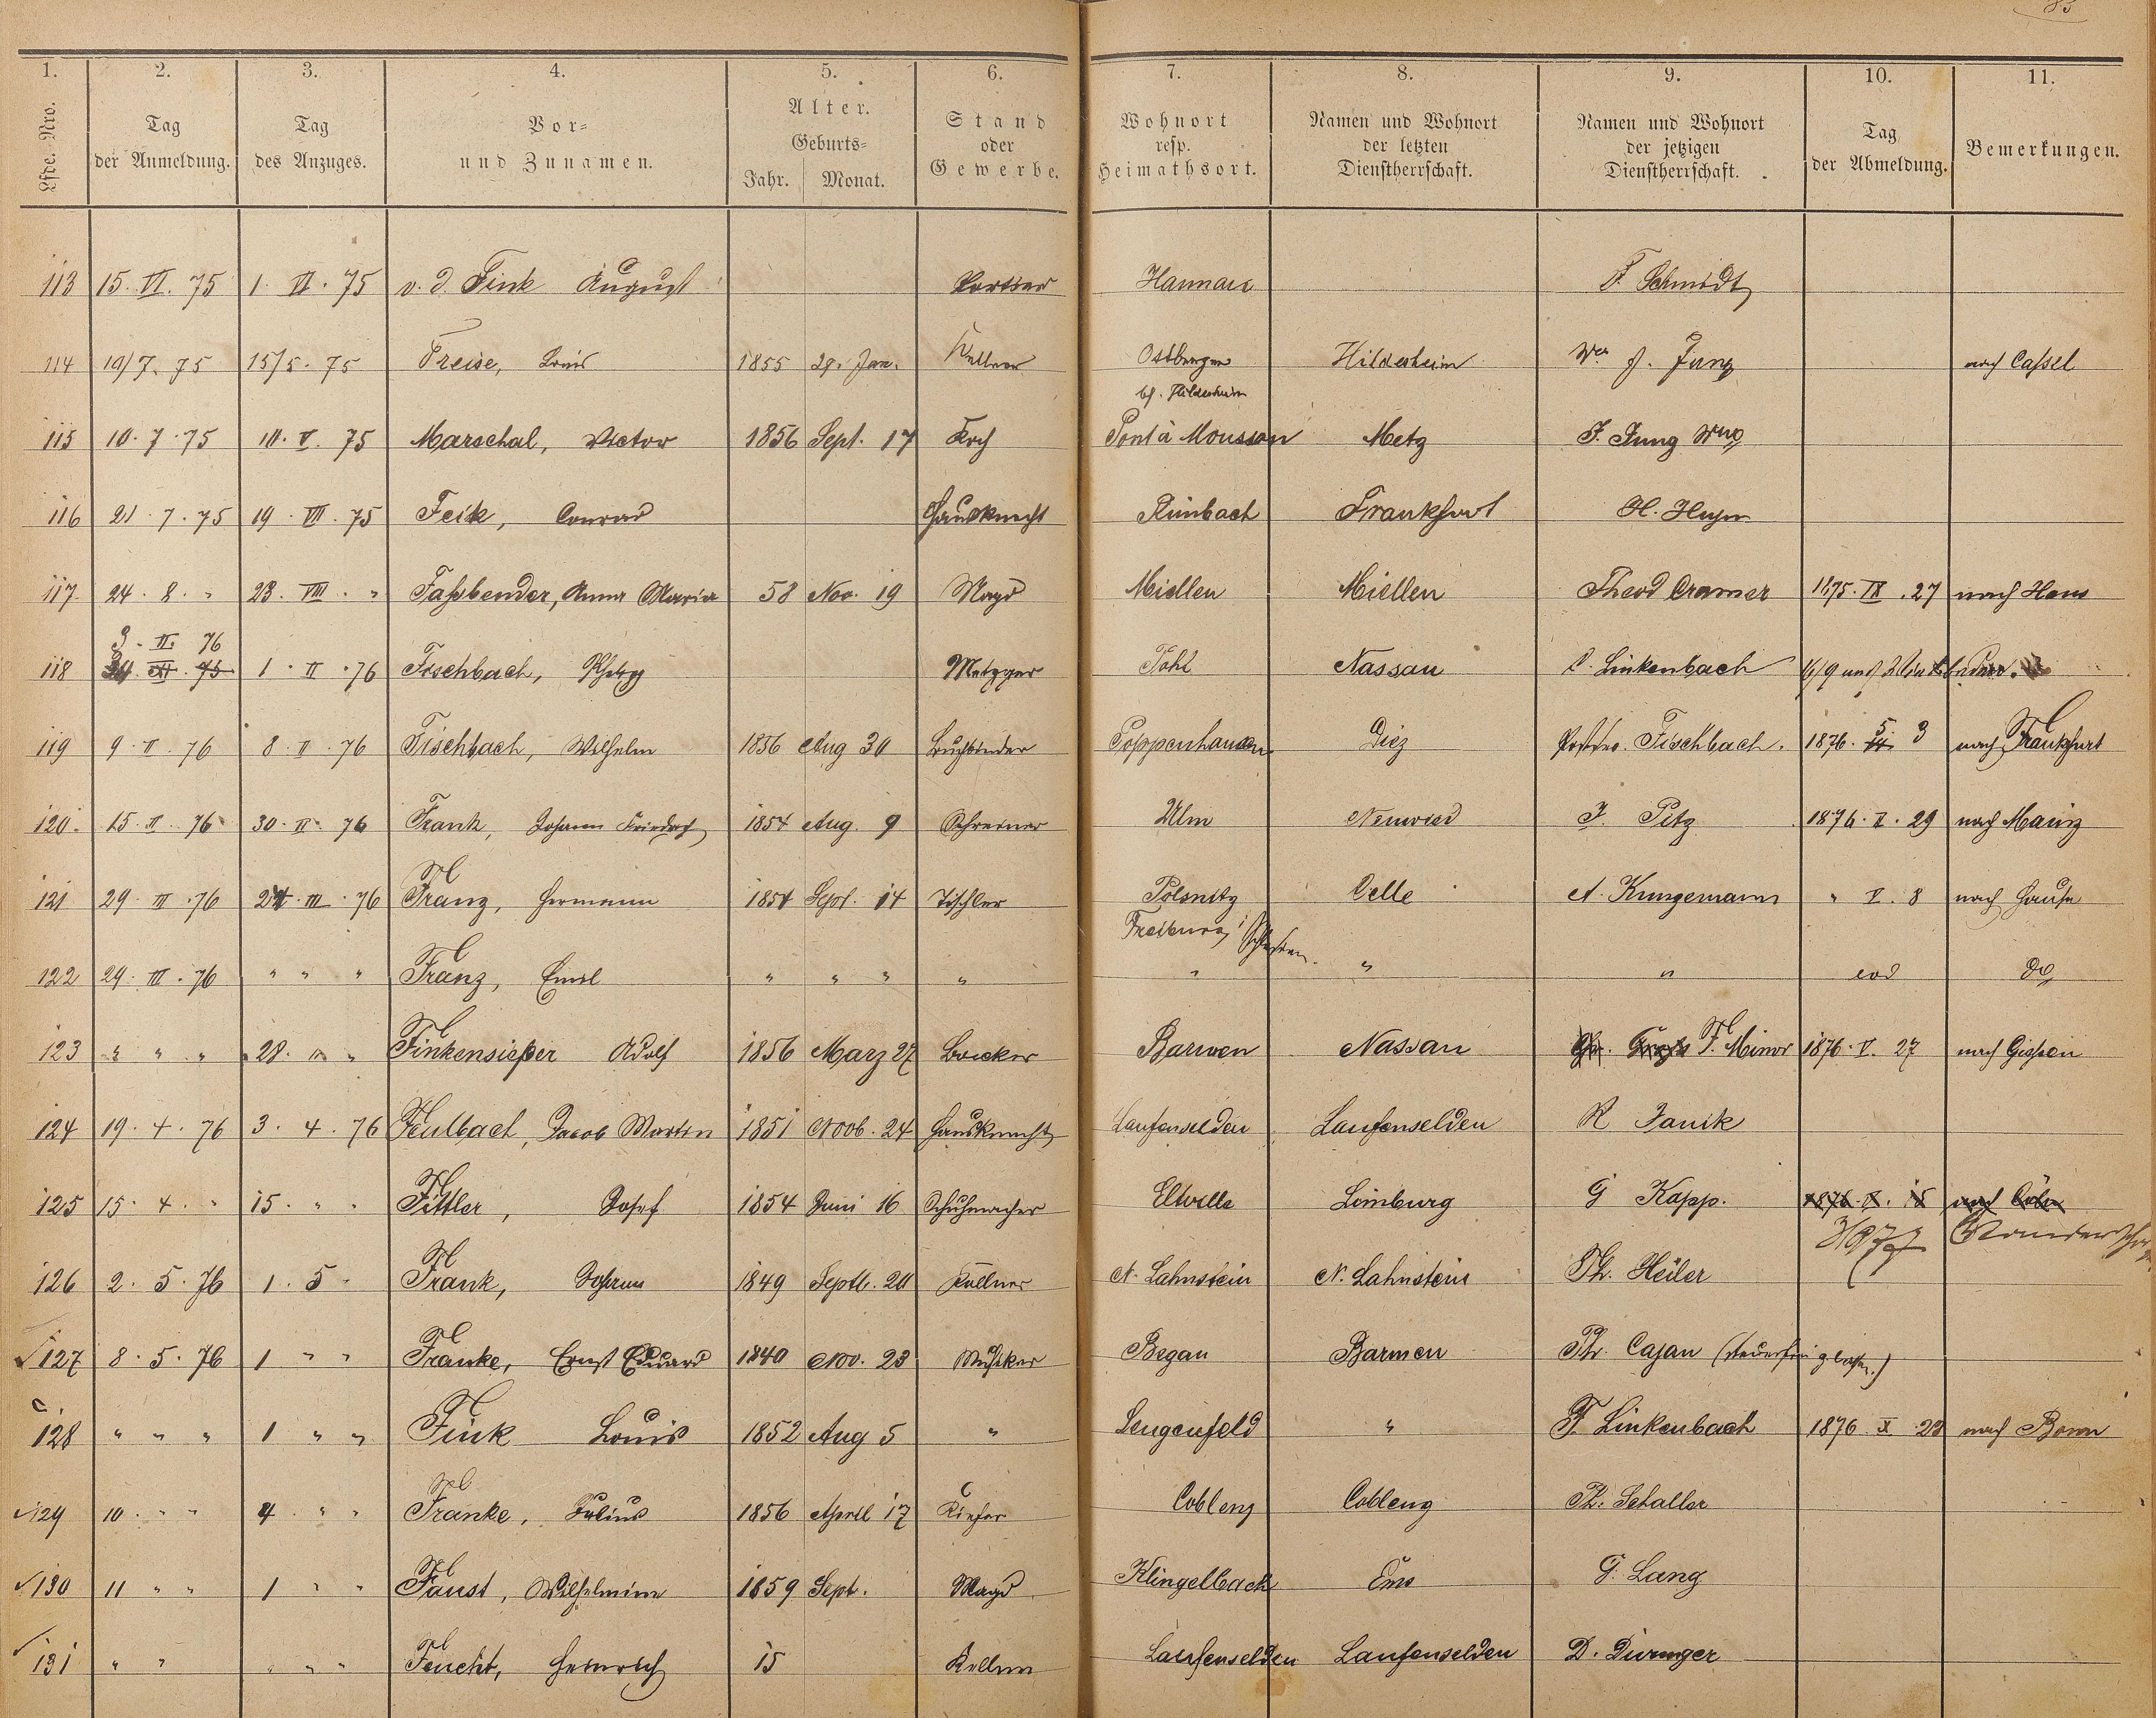 85
1. 2. 3. 4. 5. 6. 7. 8. 9. 10. 11.
Lfde. Nro. Tag der Anmeldung. Tag des Anzuges. Vor- und Zunamen. Alter. Geburts- Jahr. Monat. Stand oder Gewerbe. Wohnort resp. Heimathsort. Namen und Wohnort der letzten Dienstherrschaft. Namen und Wohnort der jetzigen Dienstherrschaft. Tag der Abmeldung. Bemerkungen.
113 15. VI. 75 1. VI. 75 v. d. Fink August Portier Hannau F. Schmidt
114 10/7. 75 15/5. 75 Freise, Louis 1855 29. Jan. Kellner Ostbergen Hildesheim We J. Jung nach Cassel
bf. Hildesheim
115 10. 7. 75 10. V. 75 Marschal, Victor 1856 Sept. 17 Koch Pont à Mousson Metz J. Jung Wwe
116 21. 7. 75 19. VII. 75 Feik, Conrad Hausknecht Rimbach Frankfurt H.
117. 24. 8. " 23. VIII. " Faßbender, Anna Maria 58 Nov. 19 Magd Miellen Miellen Theod Cramer 1875. IX. 27 nach Haus
3. II. 76
118 1. II. 76 Fischbach, Metzger Pohl Nassau C. Linkenbach
119 9. II. 76 8. II. 76 Fischbach, Wilhelm 1856 Aug 30 Buchbinder Poppenhausen Diez Fischbach. 1876. 5 3 nach Frankfurt
120. 15. II. 76 30. II. 76 Frank, Johann Friedrich 1854 Aug. 9 Schreiner Ulm Neuwied J. Pitz 1876. V. 29 nach Mainz
121 29. III. 76 24. III. 76 Franz, Hermann 1854 Sept. 14 Tischler Polsnitz Celle A. Kungemann " V. 8 nach Hause
Freiburg i/ Schlesien.
122 29. III. 76 " " " Franz, Emil " " " " " " " eod do
123 " " " 28. " " Finkensieper Adolf 1856 Marz 27 Baecker Barmen Nassau F. Minor 1876. V. 27 nach Gießen
124 19. 4. 76 3. 4. 76 Feulbach, Jacob Martin 1851 Novb. 24 Hausknecht Laufenselden Laufenselden R Janik
125 15. 4. " 15. " " Fittler, Josef 1854 Juni 16 Schuhmacher Eltville Limburg G Kapp. 1876. V. 15 nach Cöln
3/9 77
126 2. 5. 76 1. 5 " Frank, Johann 1849 Septb. 20 Kellner N. Lahnstein N. Lahnstein Th. Heiler
127 8. 5. 76 1 " " Franke, Ernst Eduard 1840 Nov. 23 Musiker Began Barmen Th. Cajan (steuerfrei gelassen.)
128 " " " 1 " " Fink Louis 1852 Aug 5 " Lengenfeld " F. Linkenbach 1876. X. 23 nach Bonn
129 10. " " 4 " " Franke, Julius 1856 April 17 Küfer Coblenz Coblenz Th. Schaller
130 11 " " 1 " " Faust, Wilhelmine 1859 Sept. Magd Klingelbach Ems G. Lang
131 " " " " " Feucht, Heinrich 15 Kellner Laufenselden Laufenselden D. Duringer